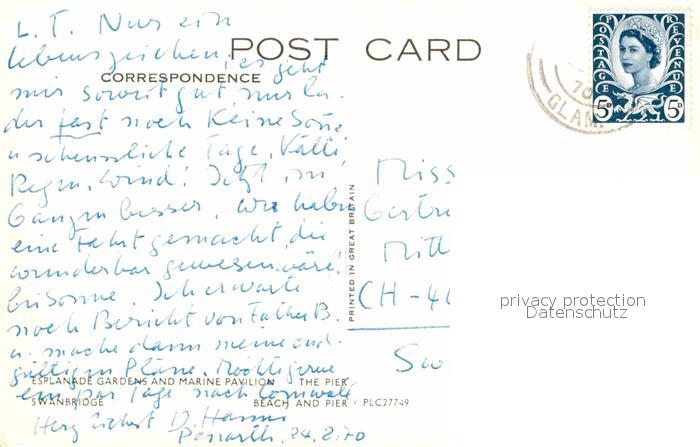 L. T. Nur ein
POST CARD
lebenszeichen, es geht
CORRESPONDENCE
mir soweit gut, nur lei-
der fast noch keine Sonne,
u scheussliche Tage, Kälte,
Regen, Wind! Jetzt im
Ganzen besser, wir haben
eine Fahrt gemacht, die
wunderbar gewesen wäre
bei Sonne. Ich erwarte
noch Bericht von Father B.
u. mache dann meine end-
gültigen Pläne. Möchte gerne
ESPLANADE GARDENS AND MARINE PAVILION THE PIER
ein paar Tage nach Cornwall
SWANBRIDGE BEACH AND PIER PLC27749
Herzlichst D.
Penarth. 24.8.70
PRINTED IN GREAT BRITAIN
Miss
Gertru
Mitt
CH-4
Sw
POSTAGE REVENUE
5D 5D
70
GLAM.
privacy protection
Datenschutz